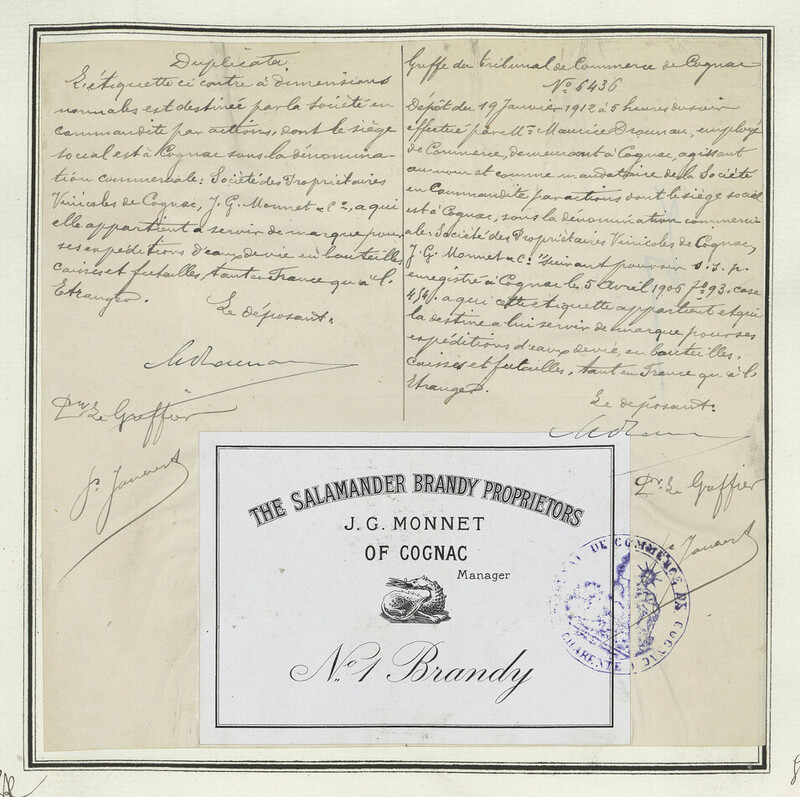 Duplicata.
L'étiquette ci contre à dimensions
normales est destinée par la société en
commandite par actions, dont le siège
social est à Cognac sous la dénomina-
tion commerciale: Société des Propriétaires
Vinicoles de Cognac, J. G. Monnet & Cie, a qui
elle appartient a servir de marque pour
ses expéditions d'eaux de vie en bouteilles,
caisses et futailles, tant en France qu'à l'
Etranger.
Le déposant:
Pr. Le Greffier
Greffe du tribunal de Commerce de Cognac
No 6436
Dépôt du 19 Janvier 1912 à 5 heures du soir
effectué par Mr. Maurice employé
de Commerce, demeurant à Cognac, agissant
au nom et comme mandataire de la Société
en Commandite par actions dont le siège social
est à Cognac, sous la dénomination commerci
ale: Société des Propriétaires Vinicoles de Cognac,
J. G. Monnet & Cie. suivant pouvoir s. s. p.
enregistré à Cognac le 5 Avril 1906 fo 93. case
454. a qui cette étiquette appartient et qui
la destine a lui servir de marque pour ses
expéditions d'eaux de vie, en bouteilles,
caisses et futailles, tant en France qu'à l'
Etranger.
Le déposant:
Pr. Le Greffier
THE SALAMANDER BRANDY PROPRIETORS
J. G. MONNET
OF COGNAC
Manager
No. 1 Brandy
TRIBUNAL DE COMMERCE DE COGNAC
CHARENTE